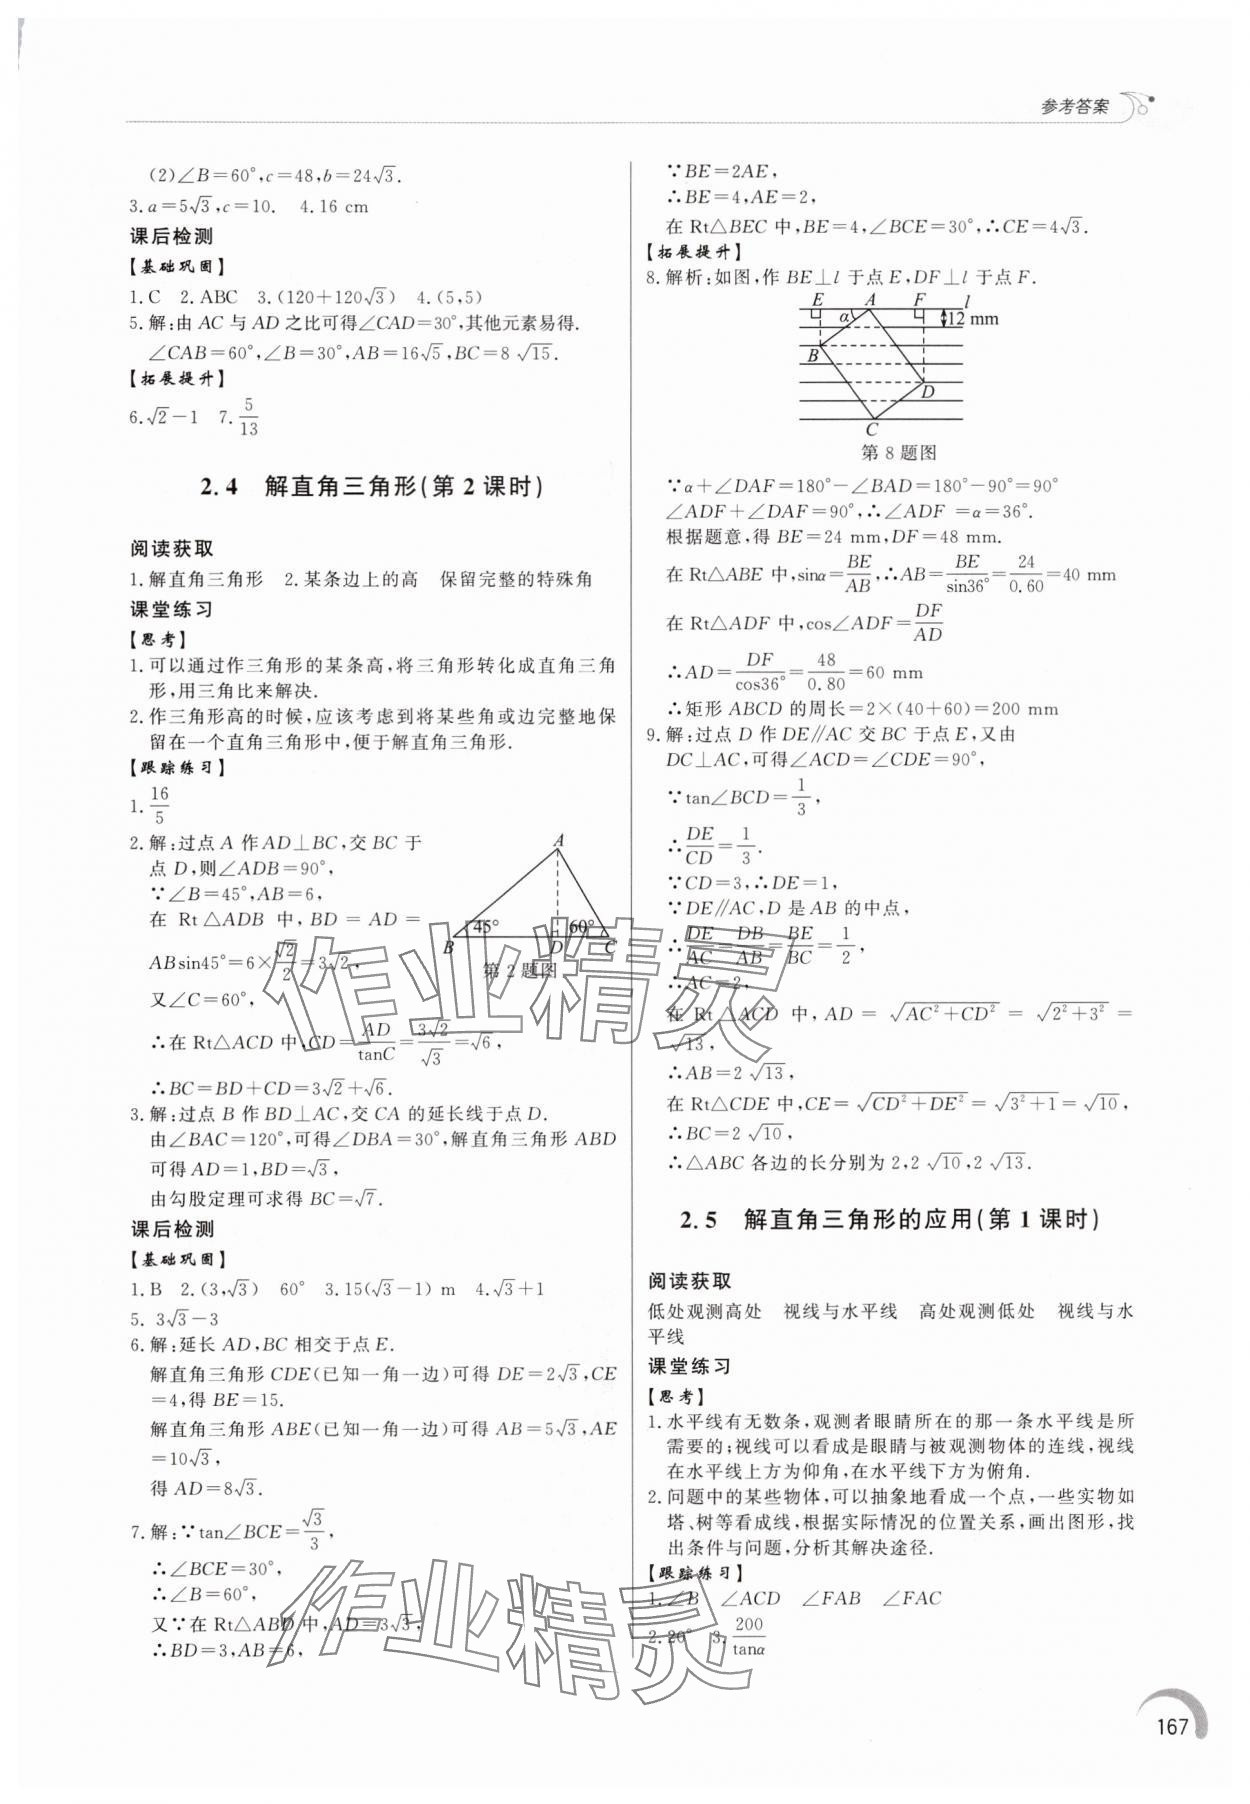 参考答案
(2)∠B=60°,c=48,b=24√3.
3.a=5√3,c=10.  4.16 cm
课后检测
【基础巩固】
1.C  2.ABC  3.(120+120√3)  4.(5,5)
5.解:由 AC 与 AD 之比可得∠CAD=30°,其他元素易得.
∠CAB=60°,∠B=30°,AB=16√5,BC=8√15.
【拓展提升】
6.√2-1  7.5/13
2.4 解直角三角形(第2课时)
阅读获取
1.解直角三角形  2.某条边上的高  保留完整的特殊角
课堂练习
【思考】
1.可以通过作三角形的某条高,将三角形转化成直角三角
形,用三角比来解决.
2.作三角形高的时候,应该考虑到将某些角或边完整地保
留在一个直角三角形中,便于解直角三角形.
【跟踪练习】
1.16/5
2.解:过点 A 作 AD⊥BC,交 BC 于
点 D,则∠ADB=90°,
∵∠B=45°,AB=6,
在 Rt△ADB 中,BD=AD=
ABsin45°=6×√2/2=3√2,
又∠C=60°,
∴在 Rt△ACD 中,CD=AD/tanC=3√2/√3=√6,
∴BC=BD+CD=3√2+√6.
A
45°
60°
B
D
C
第2题图
3.解:过点 B 作 BD⊥AC,交 CA 的延长线于点 D.
由∠BAC=120°,可得∠DBA=30°,解直角三角形 ABD
可得 AD=1,BD=√3,
由勾股定理可求得 BC=√7.
课后检测
【基础巩固】
1.B  2.(3,√3)  60°  3.15(√3-1) m  4.√3+1
5. 3√3-3
6.解:延长 AD,BC 相交于点 E.
解直角三角形 CDE(已知一角一边)可得 DE=2√3,CE
=4,得 BE=15.
解直角三角形 ABE(已知一角一边)可得 AB=5√3,AE
=10√3,
得 AD=8√3.
7.解:∵tan∠BCE=√3/3,
∴∠BCE=30°,
∴∠B=60°,
又∵在 Rt△ABD 中,AD=3√3,
∴BD=3,AB=6,
∵BE=2AE,
∴BE=4,AE=2,
在 Rt△BEC 中,BE=4,∠BCE=30°,∴CE=4√3.
【拓展提升】
8.解析:如图,作 BE⊥l 于点 E,DF⊥l 于点 F.
E
A
F
l
α
12 mm
B
D
C
第8题图
∵α+∠DAF=180°-∠BAD=180°-90°=90°
∠ADF+∠DAF=90°,∴∠ADF =α=36°.
根据题意,得 BE=24 mm,DF=48 mm.
在 Rt△ABE 中,sinα=BE/AB,∴AB=BE/sin36°=24/0.60=40 mm
在 Rt△ADF 中,cos∠ADF=DF/AD
∴AD=DF/cos36°=48/0.80=60 mm
∴矩形 ABCD 的周长=2×(40+60)=200 mm
9.解:过点 D 作 DE∥AC 交 BC 于点 E,又由
DC⊥AC,可得∠ACD=∠CDE=90°,
∵tan∠BCD=1/3,
∴DE/CD=1/3.
∵CD=3,∴DE=1,
∵DE∥AC,D 是 AB 的中点,
∴DE/AC=DB/AB=BE/BC=1/2,
∴AC=2,
在 Rt△ACD 中,AD=√(AC²+CD²)=√(2²+3²)=
√13,
∴AB=2√13,
在 Rt△CDE 中,CE=√(CD²+DE²)=√(3²+1)=√10,
∴BC=2√10,
∴△ABC 各边的长分别为 2,2√10,2√13.
2.5 解直角三角形的应用(第1课时)
阅读获取
低处观测高处  视线与水平线  高处观测低处  视线与水
平线
课堂练习
【思考】
1.水平线有无数条,观测者眼睛所在的那一条水平线是所
需要的;视线可以看成是眼睛与被观测物体的连线,视线
在水平线上方为仰角,在水平线下方为俯角.
2.问题中的某些物体,可以抽象地看成一个点,一些实物如
塔、树等看成线,根据实际情况的位置关系,画出图形,找
出条件与问题,分析其解决途径.
【跟踪练习】
1.∠B  ∠ACD  ∠FAB  ∠FAC
2.20°  3.200/tanα
作业精灵
作业精灵
167